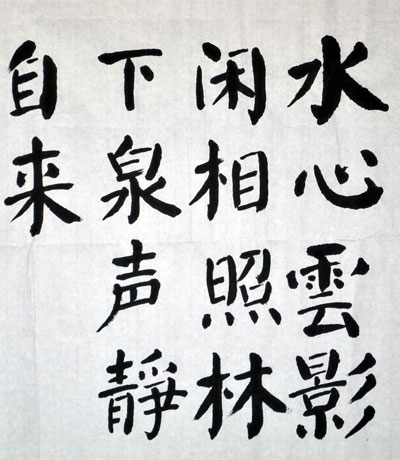 水心雲影
闲相照林
下泉声靜
自来